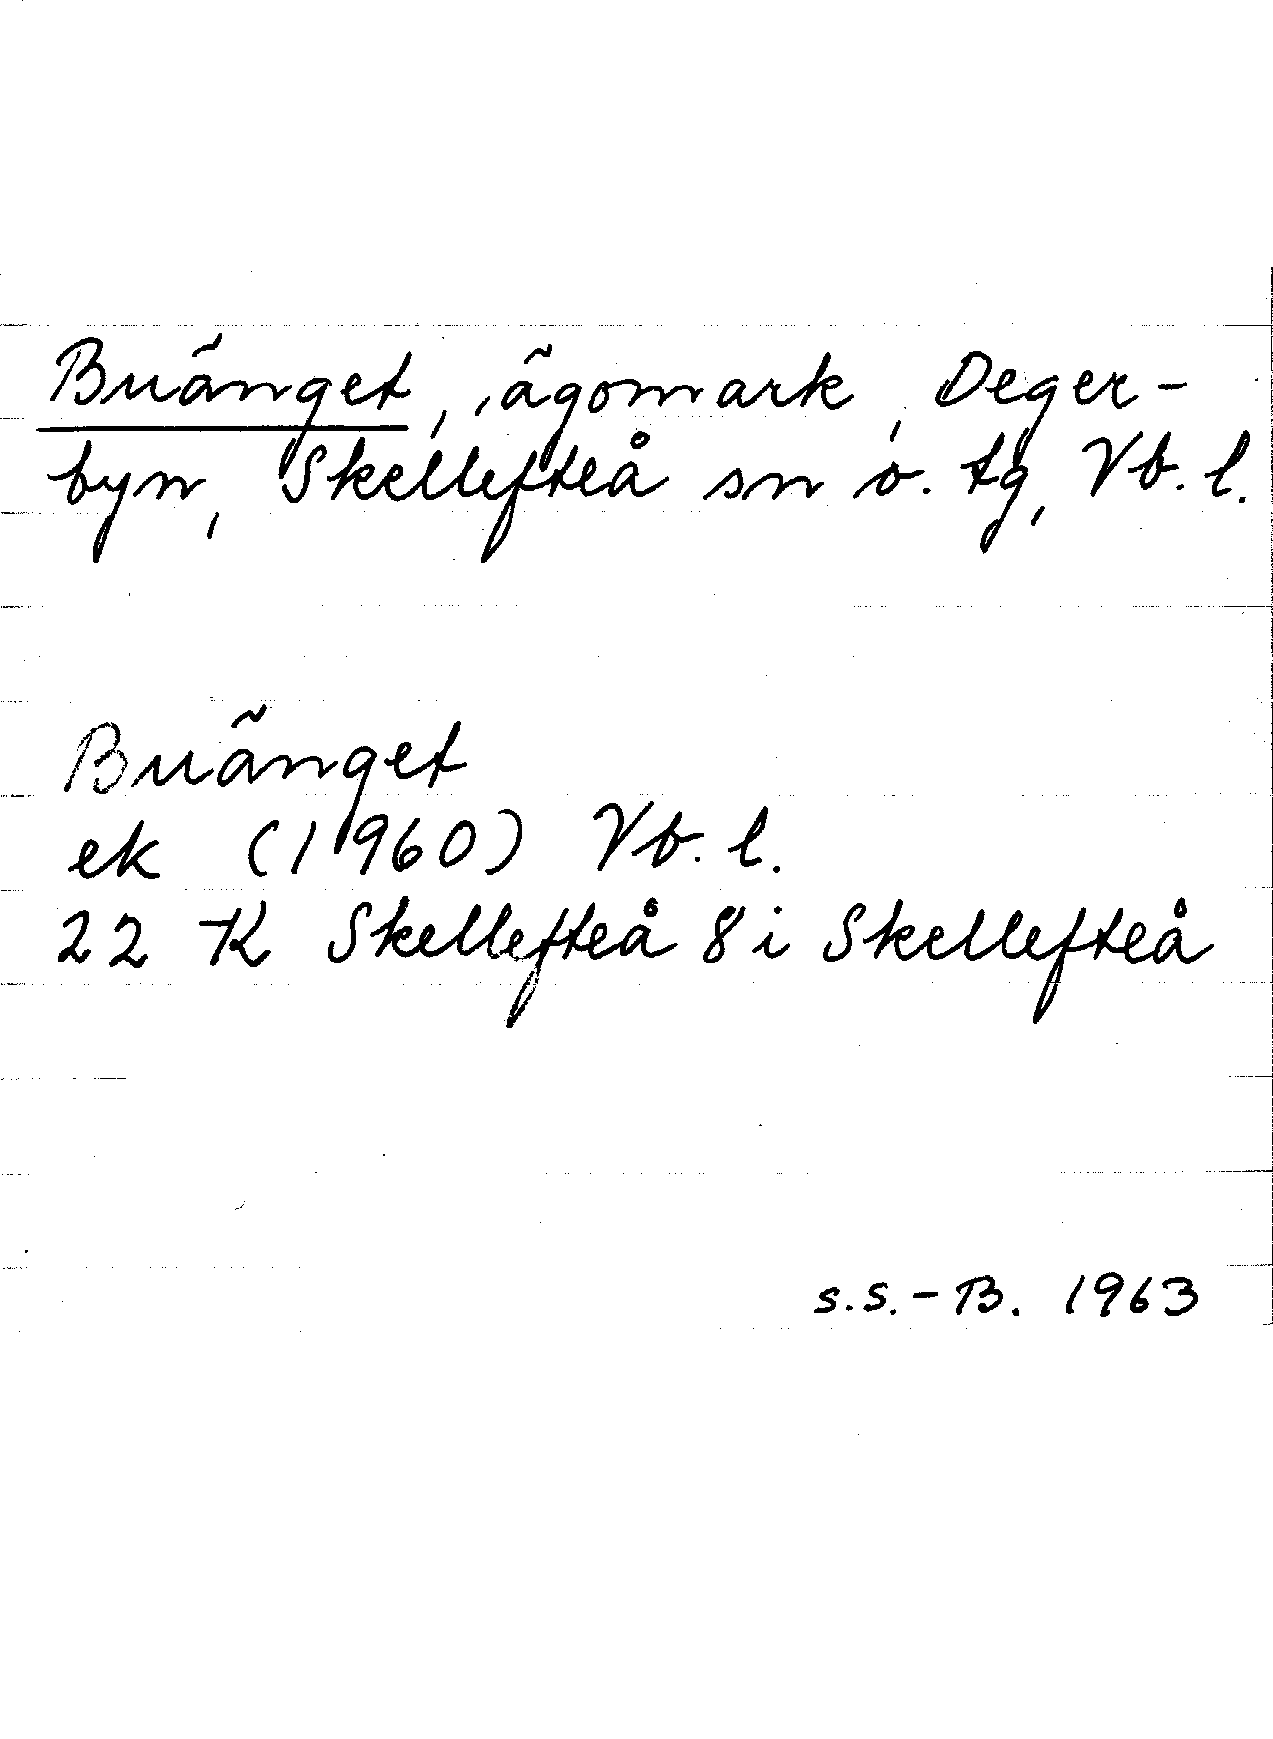 Buänget, ägomark, Deger-
byn, Skellefteå sn o. tg, Vb. l.
Buänget
ek (1960) Vb. l.
22 K Skellefteå 8 i Skellefteå
S.S.-B. 1963